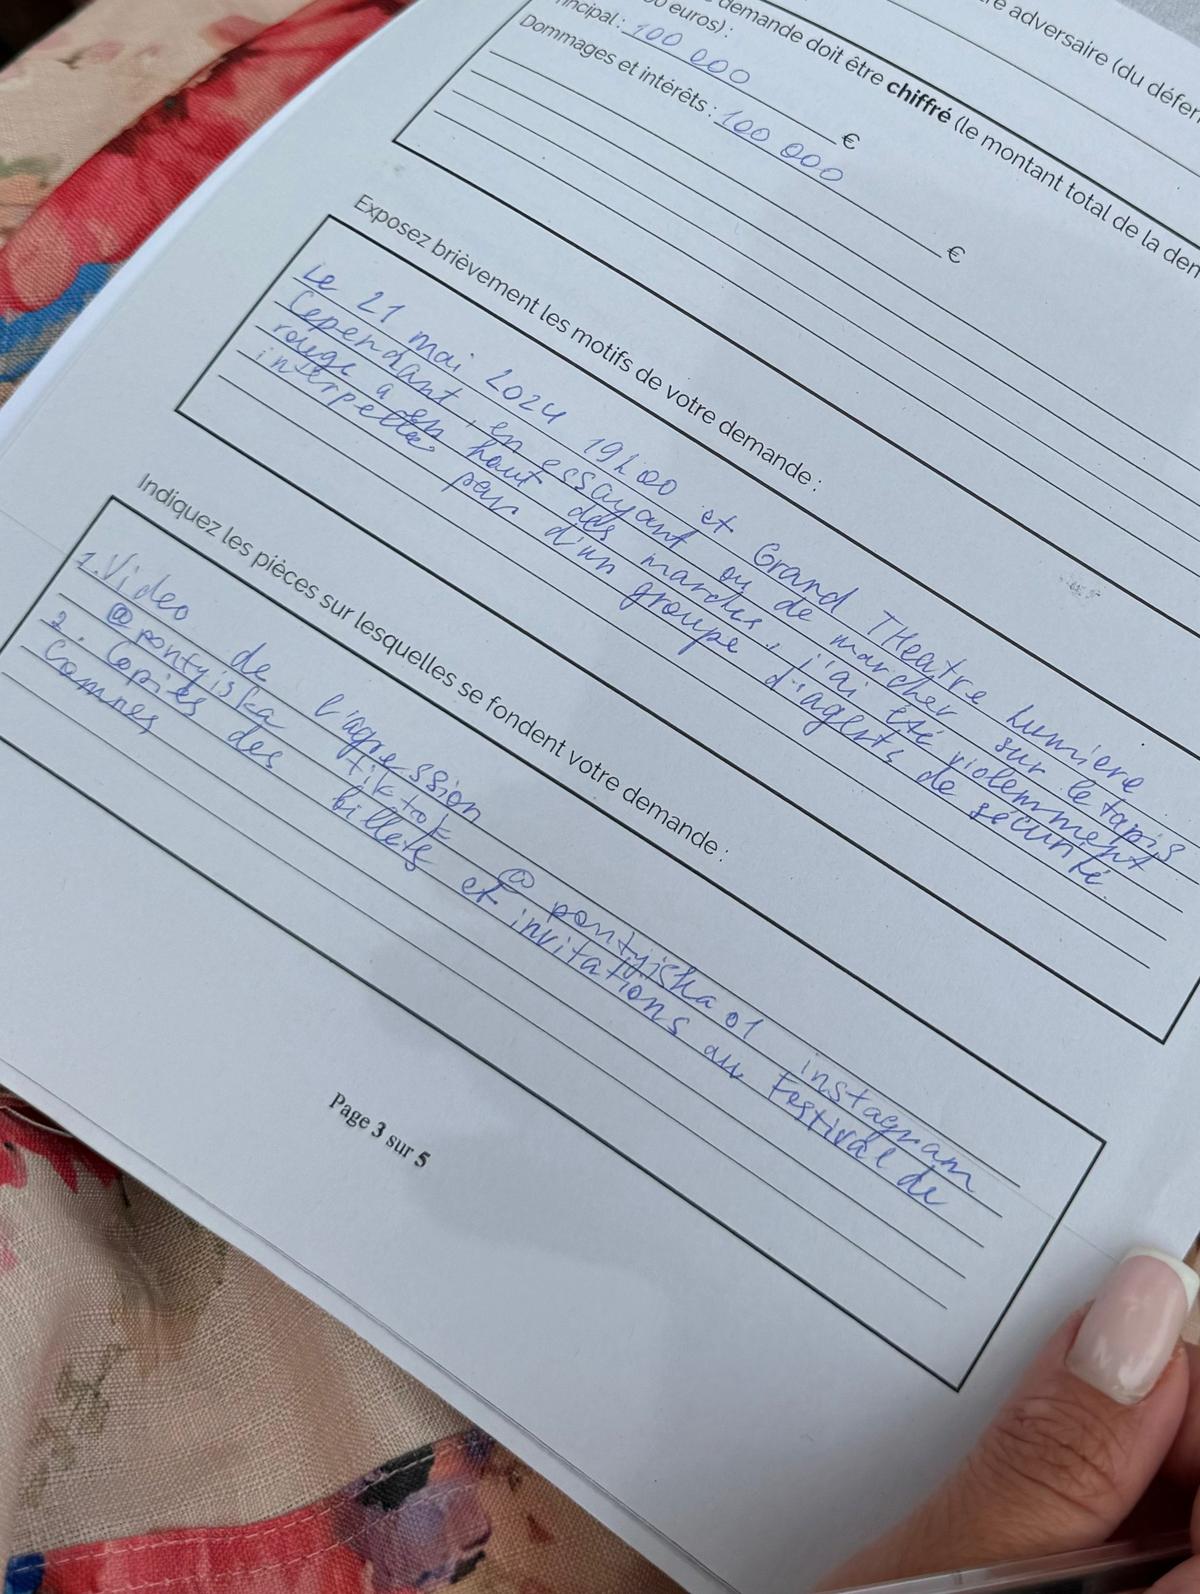 re adversaire (du défen
demande doit être chiffré (le montant total de la dem
00 euros) :
incipal : 100 000 €
Dommages et intérêts : 100 000 €
Exposez brièvement les motifs de votre demande :
Le 21 mai 2024 19h00 et Grand THeatre Lumiere
Cependant, en essayant ou de marcher sur le tapis
rouge a en haut des marches, j'ai été violemment
interpellé par d'un groupe d'agents de sécurité.
Indiquez les pièces sur lesquelles se fondent votre demande :
1. Video de l'agression @pontyiska01 instagram
@pontyiska tiktok
2. Copies des billets et invitations au Festival de
Cannes
Page 3 sur 5